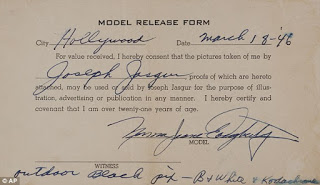 MODEL RELEASE FORM
City Hollywood Date March 18-'46
For value received, I hereby consent that the pictures taken of me by
Joseph Jasgur proofs of which are hereto
attached, may be used and by Joseph Jasgur for the purpose of
illustration, advertising or publication in any manner. I hereby certify and
covenant that I am over twenty-one years of age.
Norma Jeane Dougherty
MODEL
WITNESS
outdoor Beach pix - B & White & Kodachrome
© AP